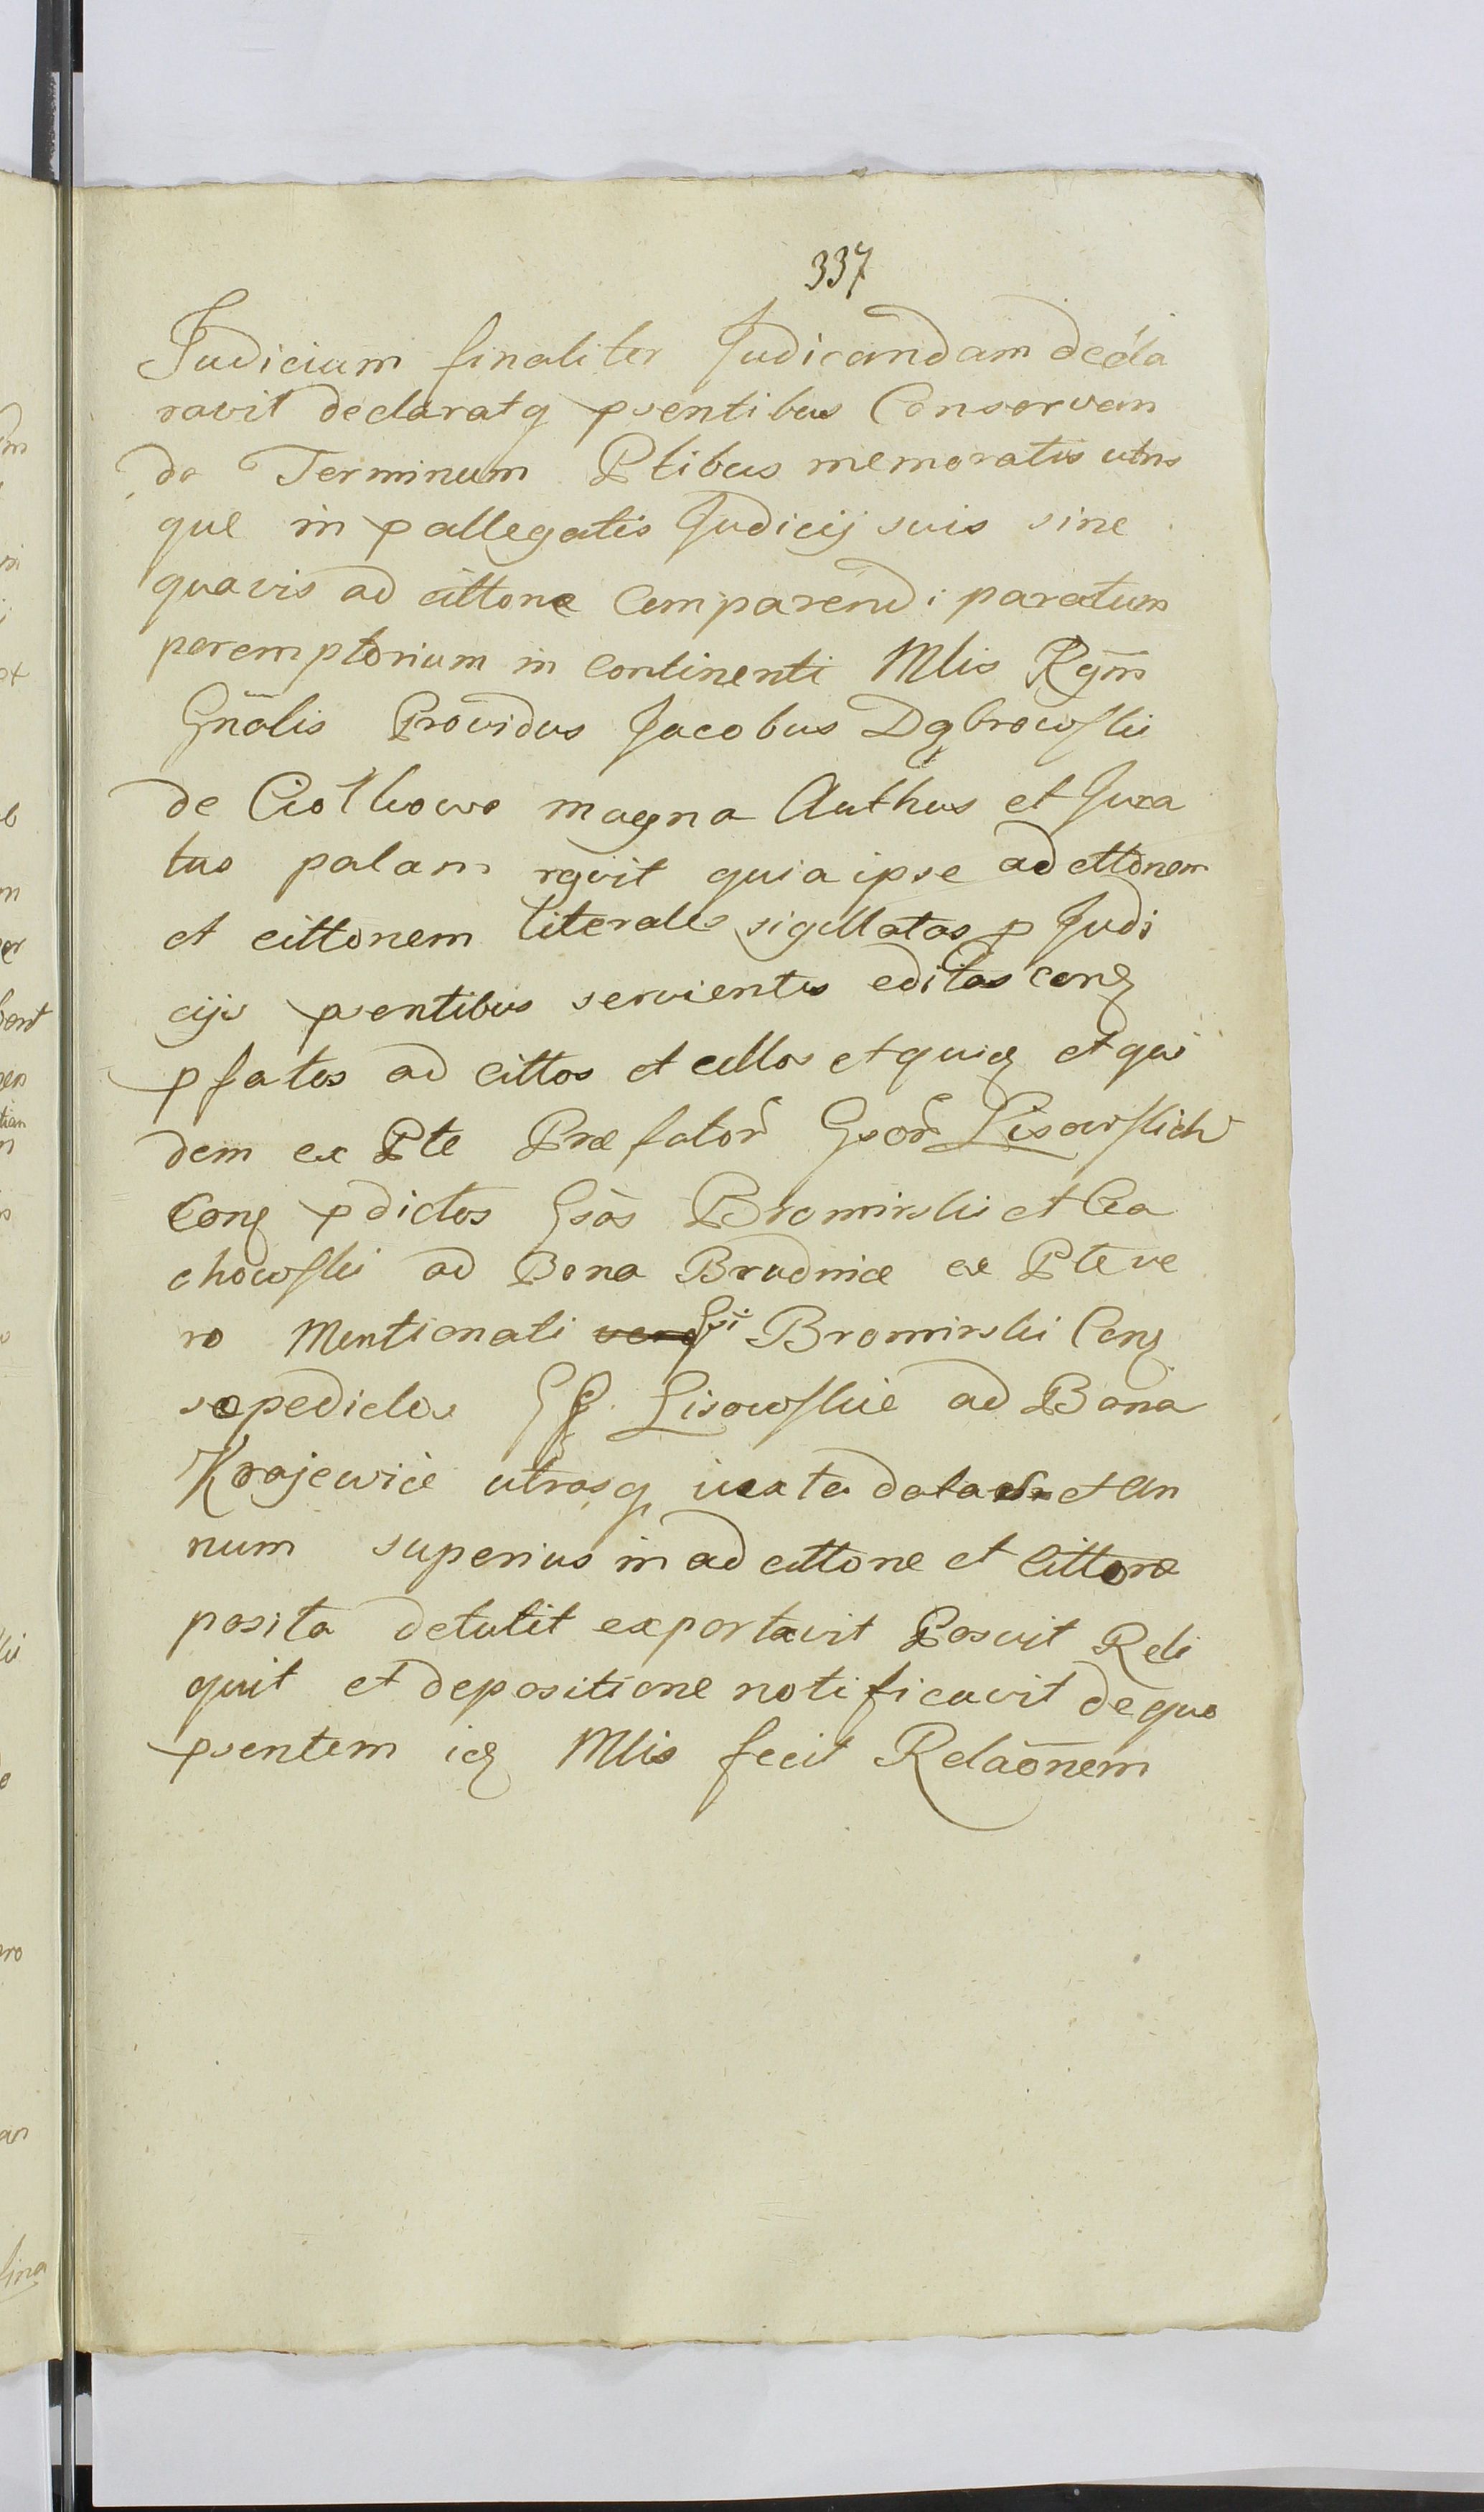 337
Judicium finaliter Judicandam decla
ravit declaratq psentibus Conservan
do Terminum Ptibus memoratis utris
que in pallegatis Judicijs suis sine
quavis ad cittone Comparendi paratum
peremptorium in continenti Mlis Rgm̃
Gn̄alis Providus Jacobus Dąbrowski
de Ciołkowo magna Authus et Jura
tus palam rgvit quia ipse ad cittonem
et cittonem literales sigillatas p Judi
cijs psentibus servientes editas conz
pfatos ad cittos et cittos et quidz et qui
dem ex Pte Præfator̃ Gsor̃ Lisowskich
Conz pdictos Gsos Bromirski et Cia
chowski ad Bona Brudnice ex Pte ve
ro Mentionati Gsi Bromirski Conz
sæpedictos GG Lisowskie ad Bona
Krajewice utrosq iuxta datam et an
num superius in ad cittone et cittone
posita detulit exportavit Posuit Reli
quit et depositione notificavit de quo
psentem idz Mlis fecit Relaõnem